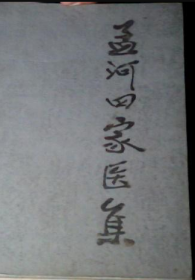 孟河四家医集